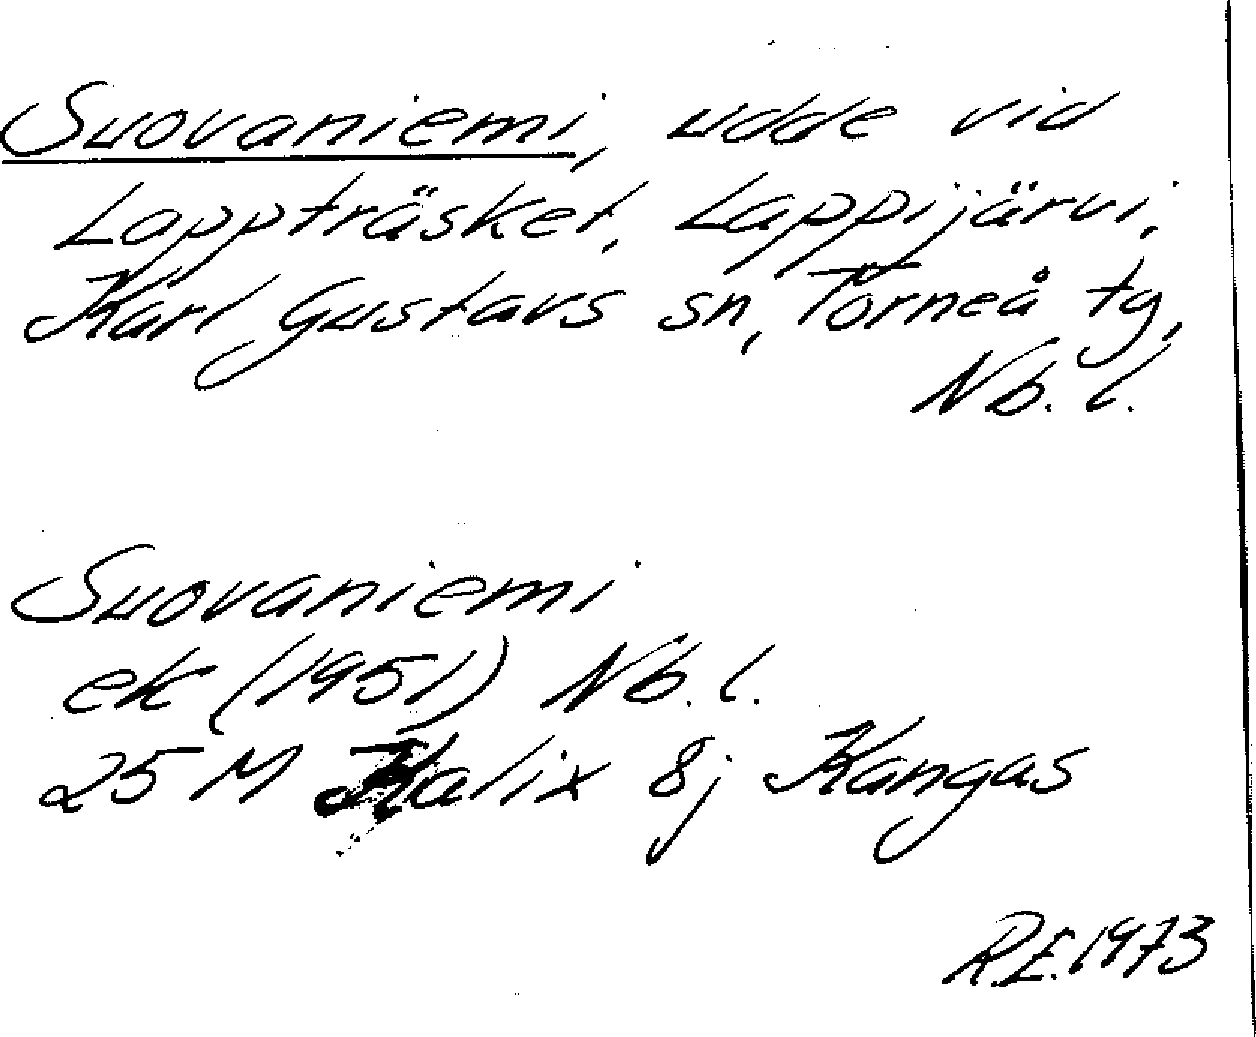 Suovaniemi, udde vid
Lappträsket, Lappijärvi,
Karl Gustavs sn, Torneå tg,
Nb. l.
Suovaniemi
ek (1951) Nb. l.
25 M Kalix 8j Kangas
R.E. 1973